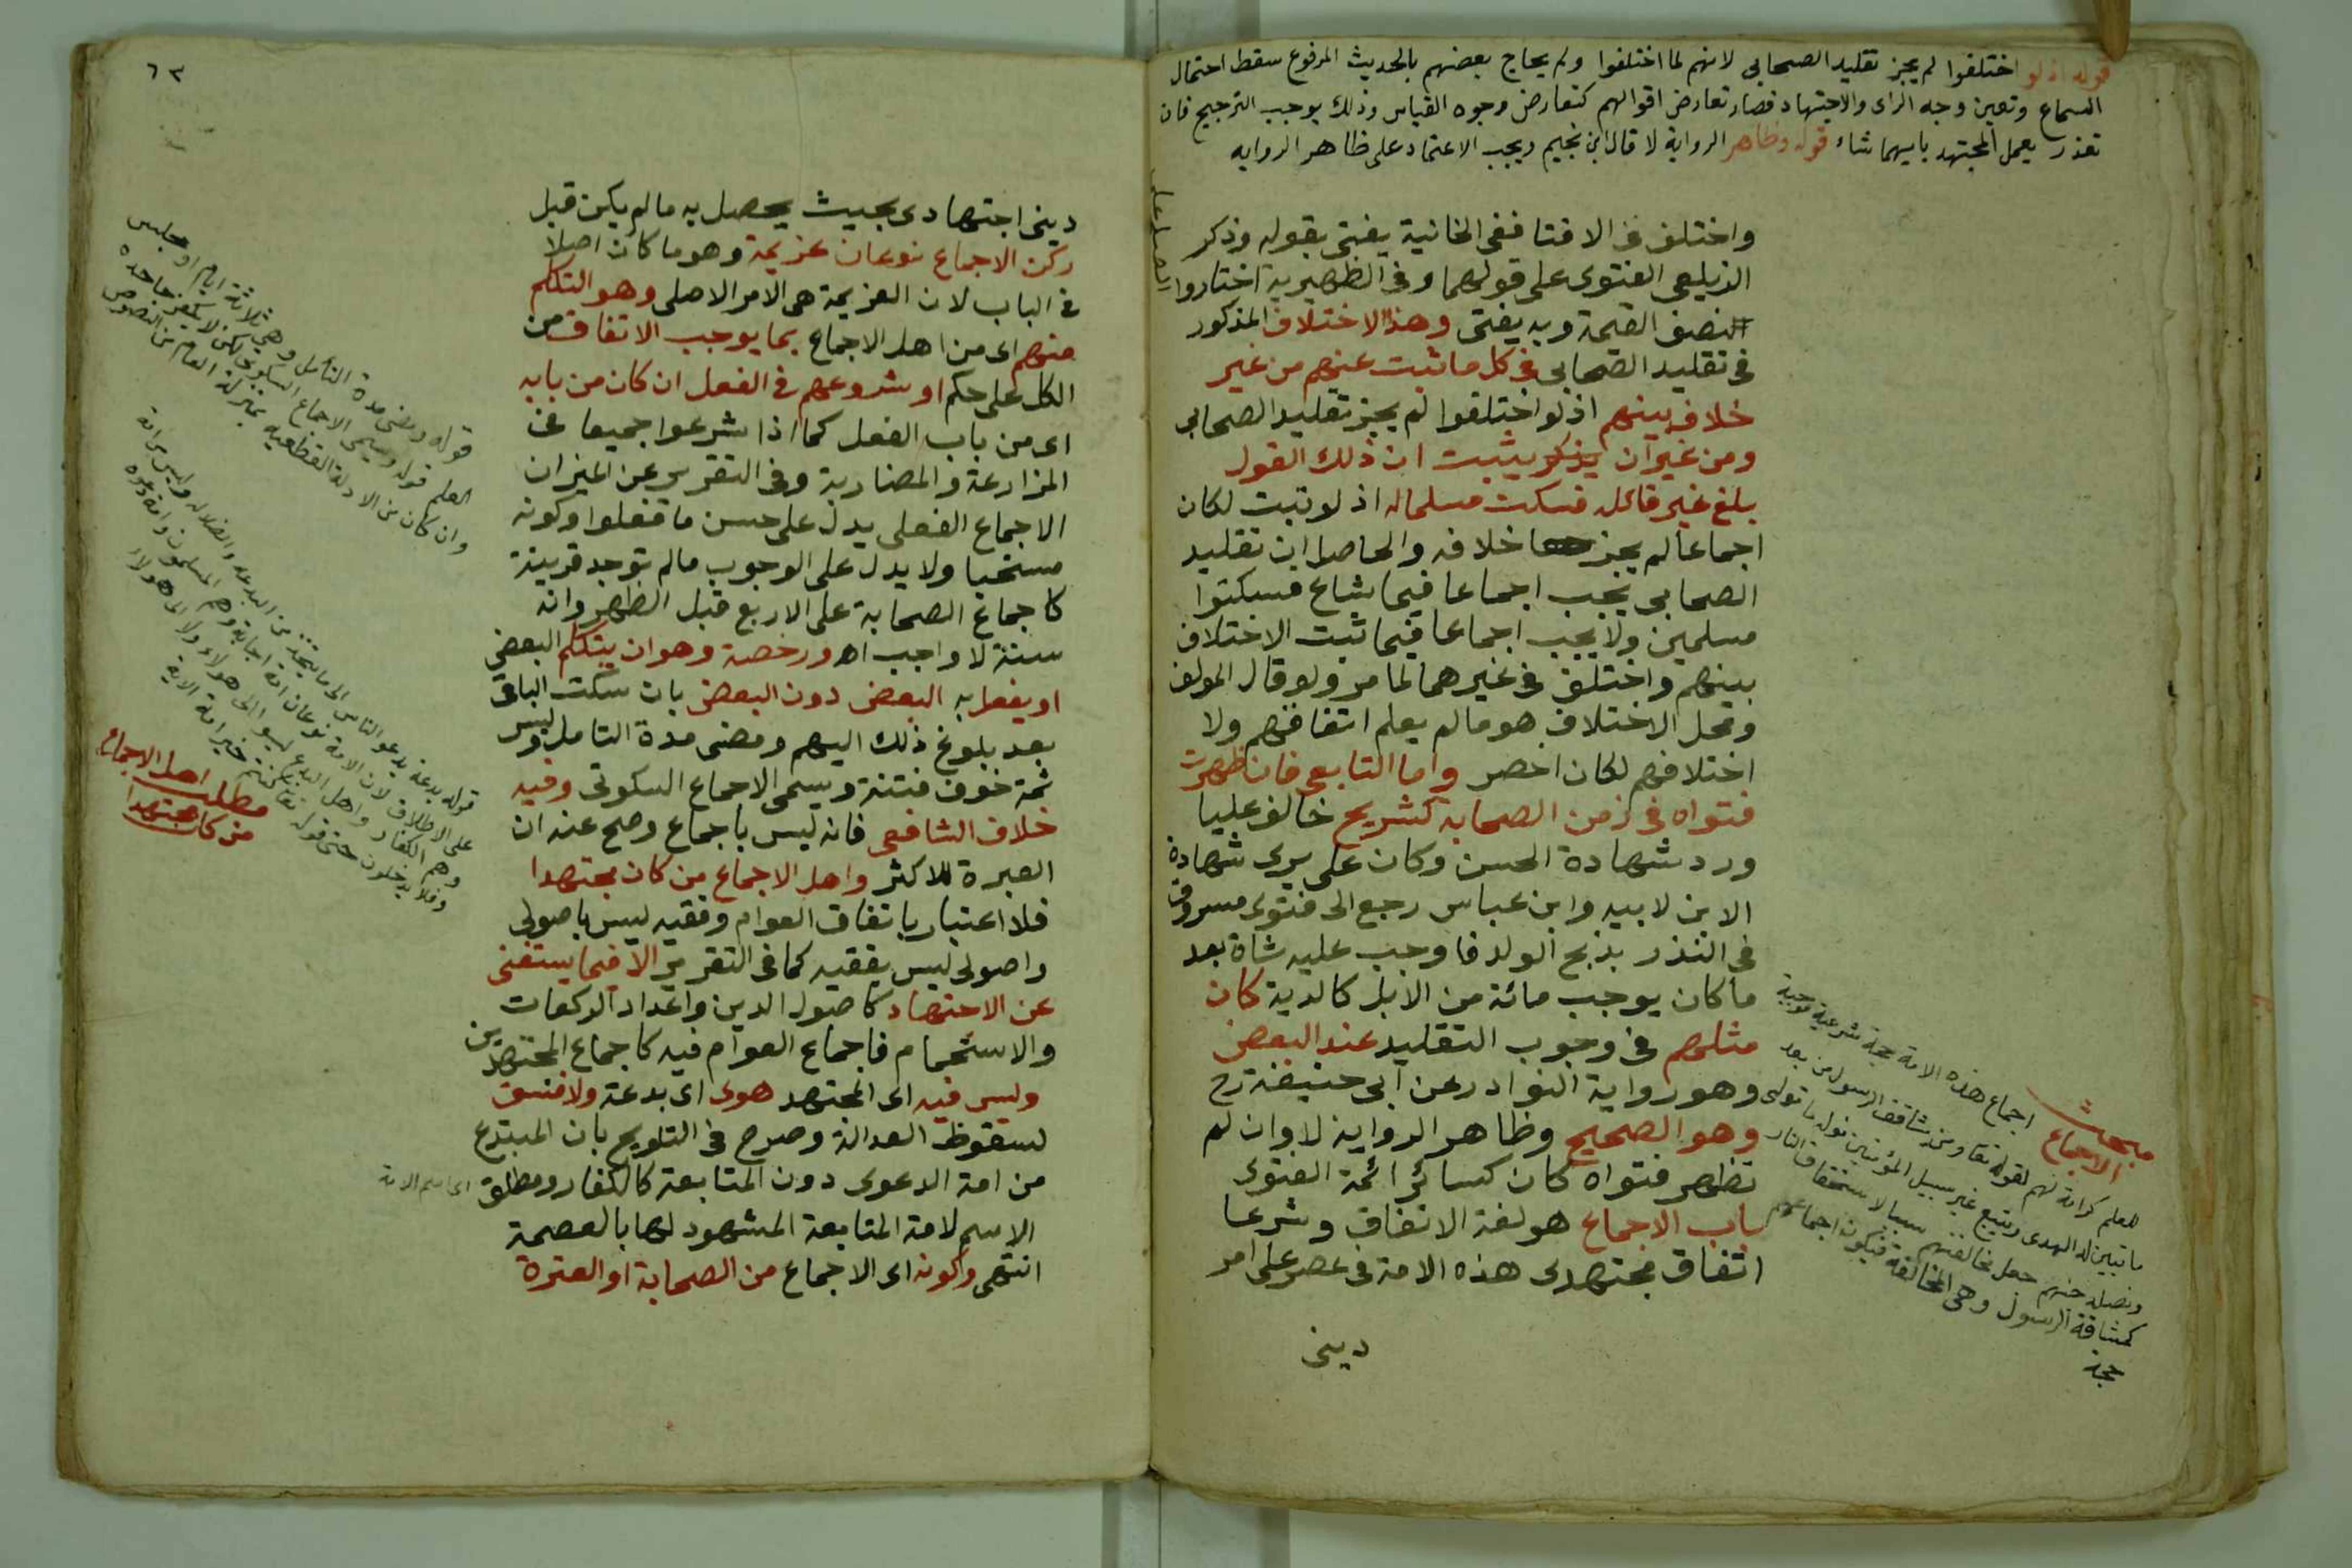 قوله اذ لو اختلفوا لم يجز تقليد الصحابى لانهم لما اختلفوا ولم يحاج بعضهم بالحديث المرفوع سقط احتمال
السماع وتعين وجه الراى والاجتهاد فصار تعارض اقوالهم كتعارض وجوه القياس وذلك يوجب الترجيح فان
تعذر يعمل المجتهد بايهما شاء قوله وظاهر الرواية لا قال ابن نجيم ويجب الاعتماد على ظاهر الروايه
واختلف فى الافتا ففى الخانية يفتى بقوله وذكر
الزيلعى الفتوى على قولهما وفى الظهيرية اختاروا
النصف القيمة وبه يفتى وهذا الاختلاف المذكور
فى تقليد الصحابى فى كل ما ثبت عنهم من غير
خلاف بينهم اذ لو اختلفوا لم يجز تقليد الصحابى
ومن غير ان يثبت ان ذلك القول
بلغ غير قائله فسكت مسلما له اذ لو ثبت لكان
اجماعا لم يجز خلافه والحاصل ان تقليد
الصحابى يجب اجماعا فيما شاع فسكتوا
مسلمين ولا يجب اجماعا فيما ثبت الاختلاف
بينهم واختلف فى غيرهما لما مر ولو قال المولف
ومحل الاختلاف هو ما لم يعلم اتفاقهم ولا
اختلافهم لكان اخصر واما التابعى فان ظهرت
فتواه فى زمن الصحابه كشريح خالف عليا
ورد شهادة الحسن وكان على يرى شهادة
الابن لابيه وابن عباس رجع الى فتوى مسروق
فى النذر بذبح الولد فاوجب عليه شاة بعد
ما كان يوجب مائة من الابل كالدية كان
مثلهم فى وجوب التقليد عند البعض
وهو رواية النوادر عن ابى حنيفة رح
وهو الصحيح وظاهر الرواية لا وان لم
تظهر فتواه كان كسائر ائمة الفتوى
باب الاجماع هو لغة الاتفاق وشرعا
اتفاق مجتهدى هذه الامة فى عصر على امر
دينى
مبحث
الاجماع
اجماع هذه الامة حجة شرعية موجبة
للعلم كرامة لهم لقوله تعا ومن يشاقق الرسول من بعد
ما تبين له الهدى ويتبع غير سبيل المؤمنين نوله ما تولى
ونصله جهنم جعل مخالفتهم سببا لاستحقاق النار
كمشاقة الرسول وهى المخالفة فيكون اجماعهم
حجة
٦٣
دينى اجتهادى بحيث يحصل به ما لم يكن قبل
ركن الاجماع نوعان عزيمة وهو ما كان اصلا
فى الباب لان العزيمة هى الامر الاصلى وهو التكلم
منهم اى من اهل الاجماع بما يوجب الاتفاق من
الكل على حكم او شروعهم فى الفعل ان كان من بابه
اى من باب الفعل كما اذا شرعوا جميعا فى
المزارعة والمضاربة وفى التقرير عن الميزان
الاجماع الفعلى يدل على حسن ما فعلوا وكونه
مستحبا ولا يدل على الوجوب ما لم توجد قرينة
كاجماع الصحابة على الاربع قبل الظهر وانه
سنة لا واجب اه ورخصة وهو ان يتكلم البعض
او يفعل به البعض دون البعض بان سكت الباقى
بعد بلوغ ذلك اليهم ومضى مدة التامل وليس
ثمة خوف فتنة ويسمى الاجماع السكوتى وفيه
خلاف الشافعى فانه ليس باجماع وصح عنه ان
العبرة للاكثر واهل الاجماع من كان مجتهدا
فلا اعتبار باتفاق العوام وفقيه ليس باصولى
واصولى ليس بفقيه كما فى التقرير الا فيما يستغنى
عن الاجتهاد كاصول الدين واعداد الركعات
والاستحمام فاجماع العوام فيه كاجماع المجتهدين
وليس فيه اى المجتهد هوى اى بدعة ولا فسق
لسقوط العدالة وصرح فى التلويح بان المبتدع
من امة الدعوى دون المتابعة كالكفار ومطلق
الاسم لامة المتابعة المشهود لها بالعصمة
انتهى وكونه اى الاجماع من الصحابة او العترة
قوله ومضى مدة التامل وهى ثلاثة ايام او مجلس
العلم قوله ويسمى الاجماع السكوتى لكن لا يكفر جاحده
وان كان من الادلة القطعيه بمنزلة العام من النصوص
على الاطلاق لان الامة نوعان امة اجابة وهم المسلمون وامة دعوة
وهم الكفار واهل البدع ليسوا الى هولاء ولا الى هولاء
مطلب اهل الاجماع
من كان مجتهدا